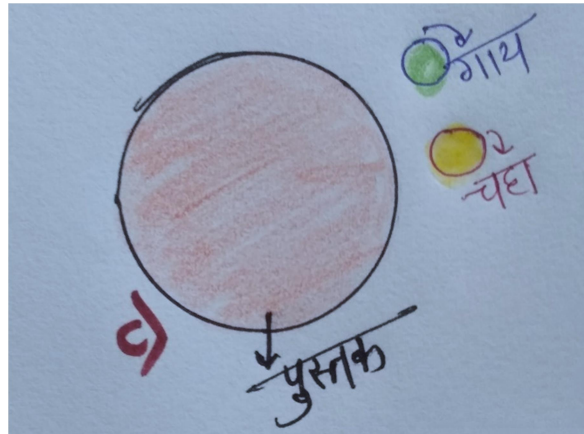 गाय
चहा
c)
पुस्तक